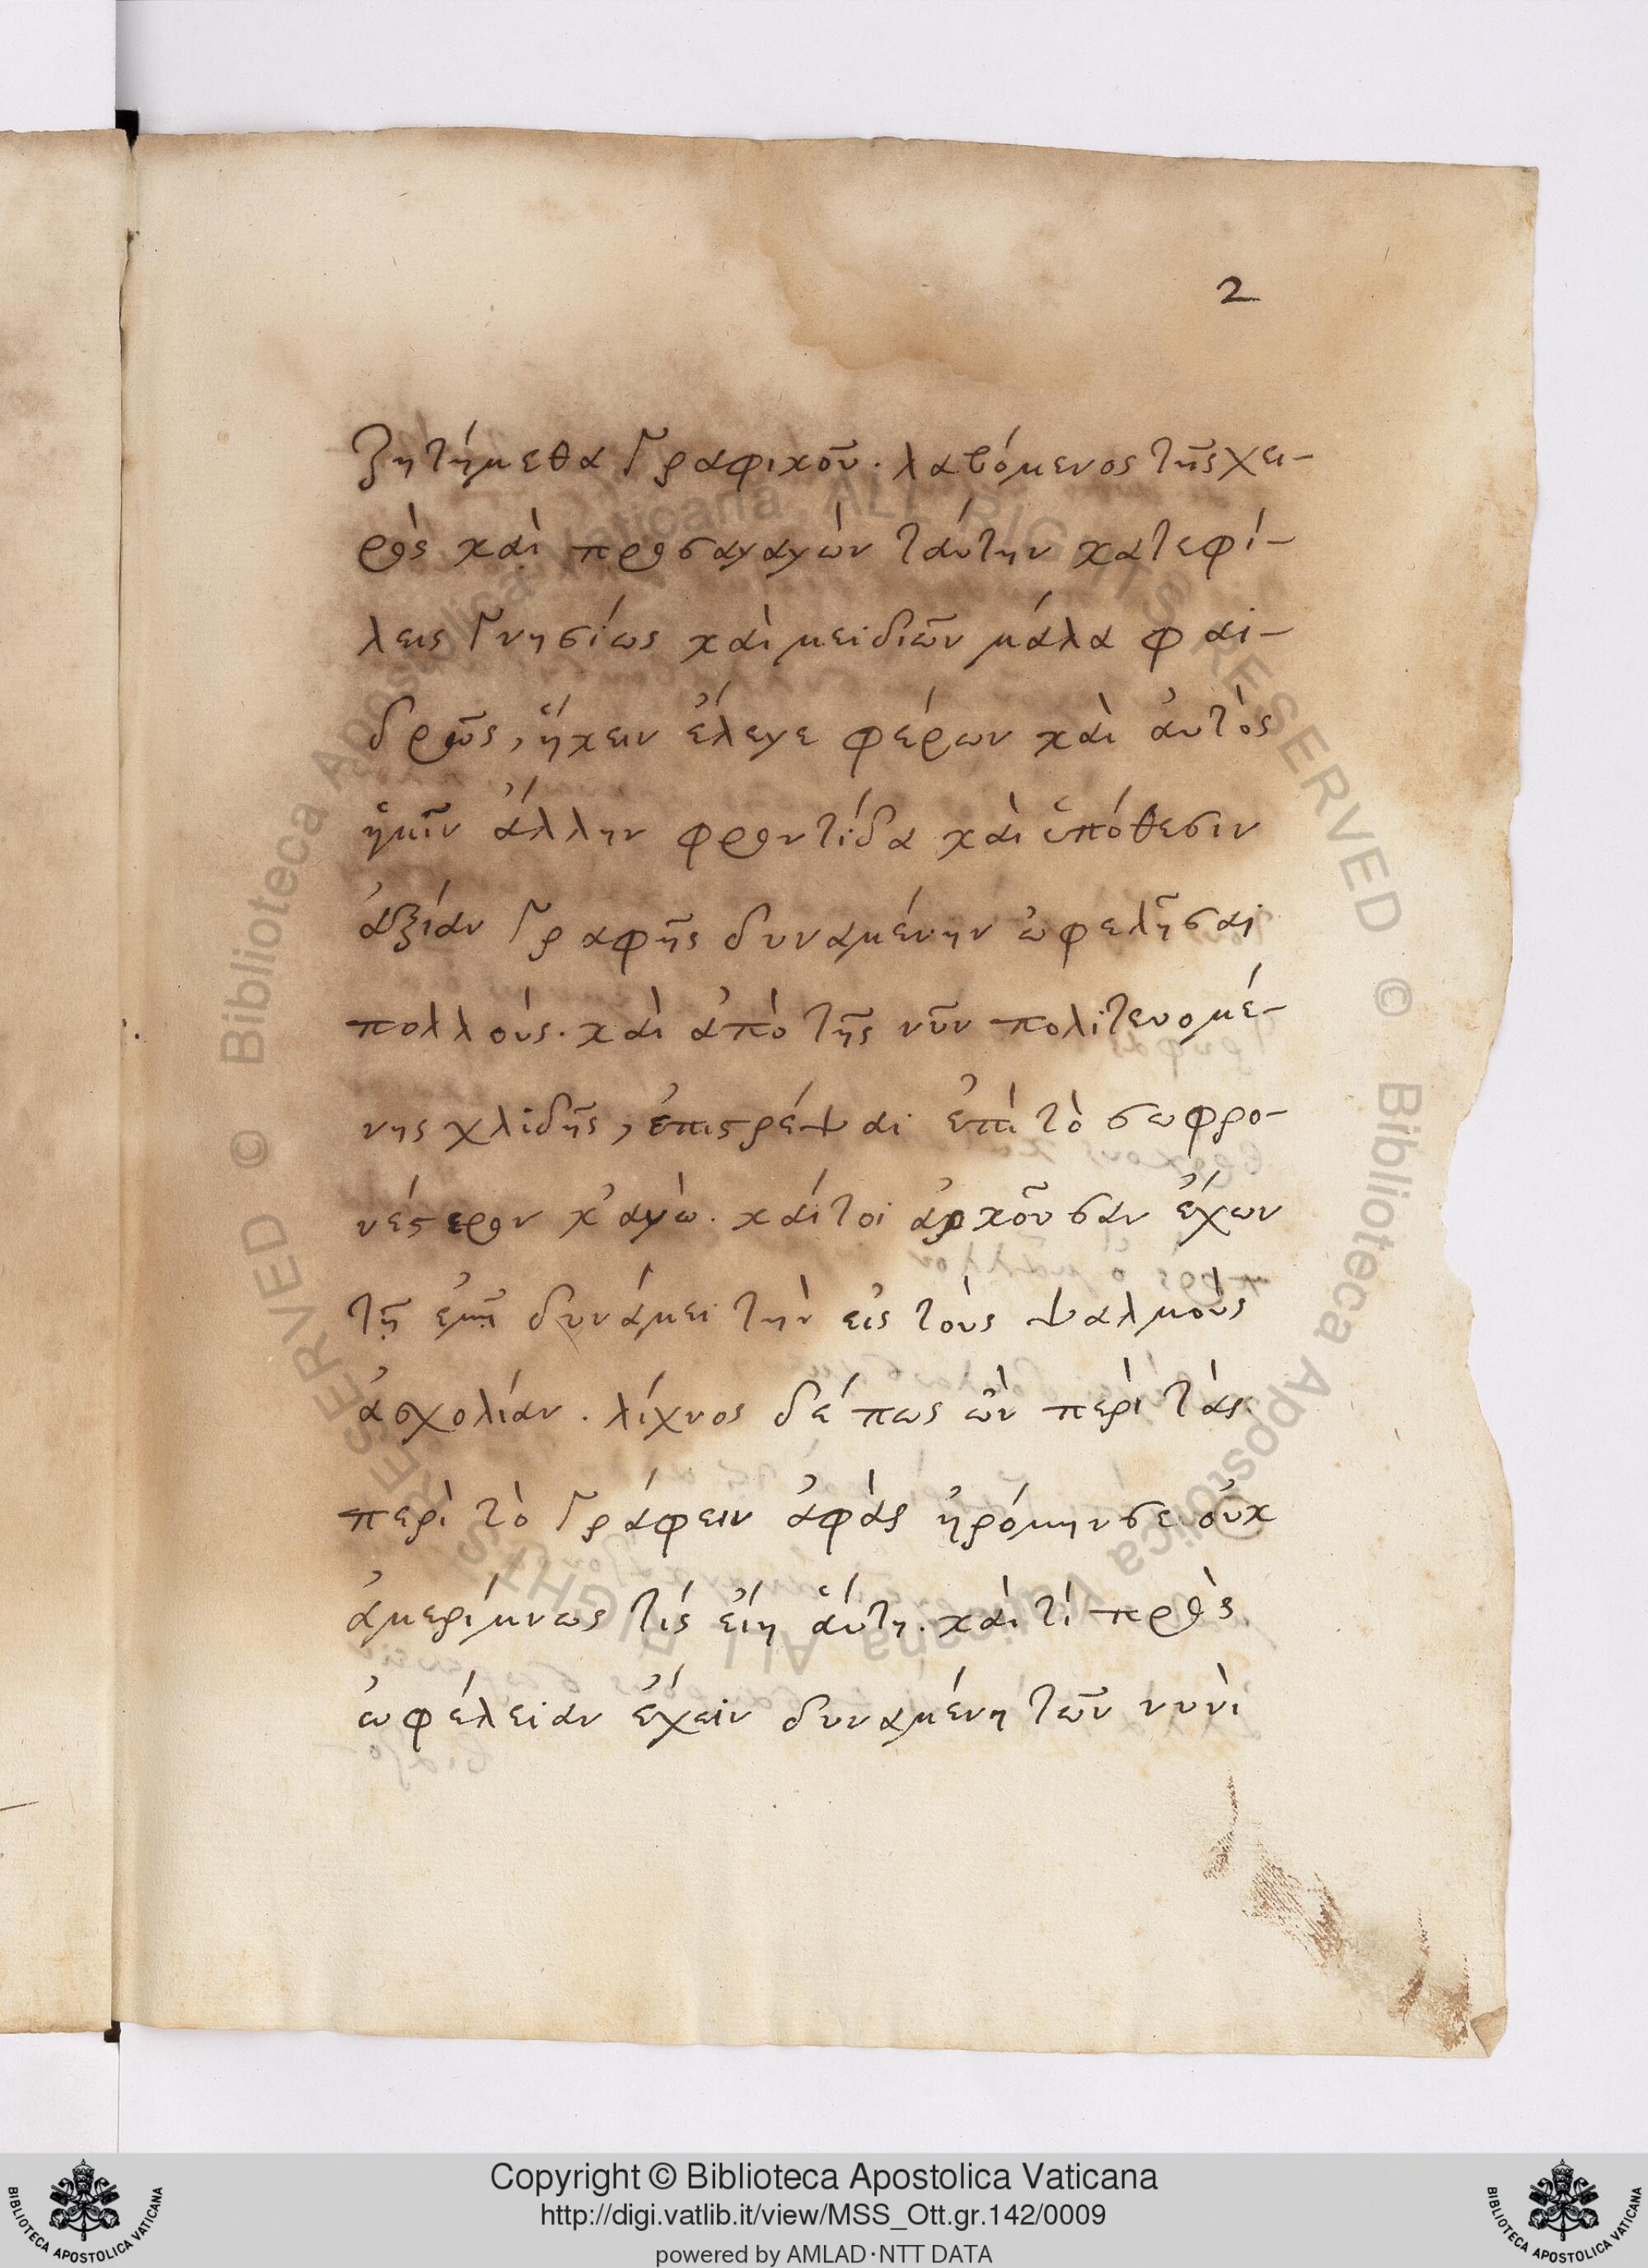 2
ζητήμεθα γραφικοῦ. λαβόμενος τῆς χει-
ρὸς καὶ προσαγαγὼν ταύτην κατεφί-
λεις γνησίως καὶ μειδιῶν μάλα φαι-
δρῶς, ἥκειν ἔλεγε φέρων καὶ αὐτὸς
ἡμῖν ἄλλην φροντίδα καὶ ὑπόθεσιν
ἀξίαν γραφῆς δυναμένην ὠφελῆσαι
πολλούς. καὶ ἀπὸ τῆς νῦν πολιτευομέ-
νης χλιδῆς, ἐπιστρέψαι ἐπὶ τὸ σωφρο-
νέστερον κ'αγὼ. καίτοι ἀρκοῦσαν ἔχων
τῇ ἐμῇ δυνάμει τὴν εἰς τοὺς ψαλμοὺς
ἀσχολίαν. λίχνος δέ πως ὢν περὶ τὰς
περὶ τὸ γράφειν ἀφὰς ἠρόμην σε οὐκ
ἀμερίμνως τίς εἴη αὕτη. καὶ τί πρὸς
ὠφέλειαν ἔχειν δυναμένη τῶν νυνὶ
© Biblioteca Apostolica Vaticana ALL RIGHTS RESERVED
© Biblioteca Apostolica Vaticana ALL RIGHTS RESERVED
Copyright © Biblioteca Apostolica Vaticana
http://digi.vatlib.it/view/MSS_Ott.gr.142/0009
powered by AMLAD·NTT DATA
BIBLIOTECA APOSTOLICA VATICANA
BIBLIOTECA APOSTOLICA VATICANA